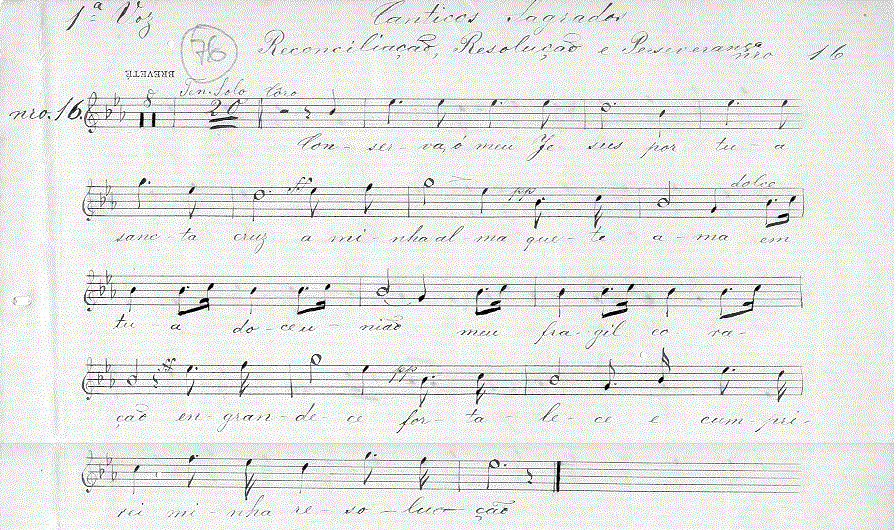 1ª Voz Canticos Sagrados
76 Reconciliação, Resolução e Perseverança nro 16
BREVETÉ
nro. 16. 8 Ten. Solo Côro
20
Con - ser - va, ó meu Je - sus por tu - a
ff pp dolce
sanc - ta cruz a mi - nha al - ma que - te a - ma em
tu - a do - ce u - nião meu fra - gil co ra -
ff pp
ção en - gran - de - ce for - ta - le - ce e cum - pri -
rei mi - nha re - so - luc - ção